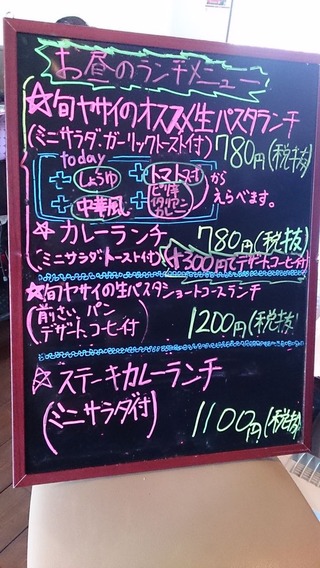 お昼のランチメニュー
☆旬ヤサイのオススメ生パスタランチ
(ミニサラダ・ガーリックトースト付) 780円(税抜)
today
しょうゆ トマト
中華風
から
えらべます。
☆カレーランチ 780円(税抜)
(ミニサラダ・トースト付) +300円でデザートコーヒー付
☆旬ヤサイの生パスタショートコースランチ
(前さい パン
デザートコーヒー付) 1200円(税抜)
☆ステーキカレーランチ
(ミニサラダ付) 1100円(税抜)